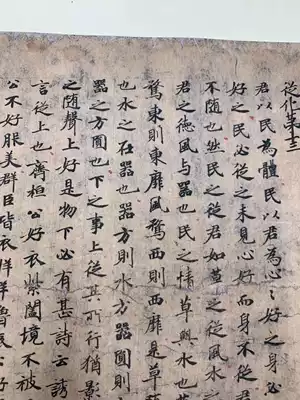 從化苐十三
君以民為體民以君為心〻好之身必
好之民必從之未見心好而身不從君
不随也然民之從君如草之從風水之
君之德風与器也民之情草與水也草
騖東則東靡風騖西則西靡是草
也水之在器也器方則水方器圓則
器之方圓也下之事上從其所行猶影
之随聲上好是物下必有甚詩云誘
言從上也齊桓公好衣紫闔境不被
公不好服美群臣皆衣牂羊魯公好